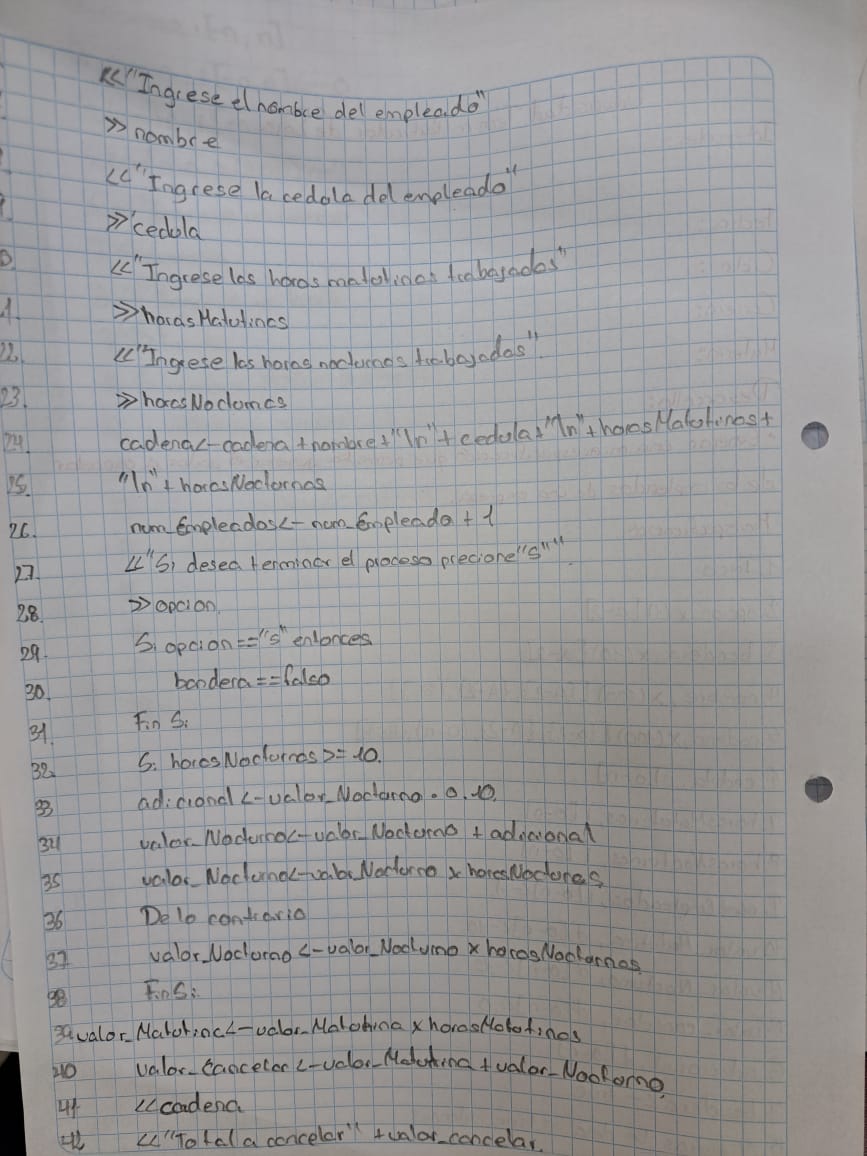 <<"Ingrese el nombre del empleado"
>>nombre
<<"Ingrese la cedola del empleado"
>>cedula
<<"Ingrese las horas matutinas trabajadas"
1. >>horasMatutinas
22. <<"Ingrese las horas nocturnas trabajadas"
23. >>horasNocturnas
24. cadena<-cadena+nombre+"\n"+cedula+"\n"+horasMatutinas+
25. "\n"+horasNocturnas
26. num_Empleados<-num_Empleado+1
27. <<"Si desea terminar el proceso precione"s""
28. >>opcion
29. Si opcion=="s" entonces
30. bandera==falso
31. Fin Si
32. Si horasNocturnas>=10.
33 adicional<-valor_Nocturno.0.10.
34 valor_Nocturno<-valor_Nocturno + adicional
35 valor_Nocturno<-valor_Nocturno x horasNocturas
36 De lo contrario
37 valor_Nocturno<-valor_Nocturno x horasNocturnas
38 Fin Si
39 valor_Matutina<-valor_Matutina x horasMatutinas
40 valor_Cancelar<-valor_Matutina + valor_Nocturno
41 <<cadena
42 <<"Total a cancelar"+valor_cancelar.